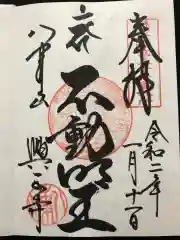 奉拝
令和二年
一月十一日
不動明王
八事山
興正寺